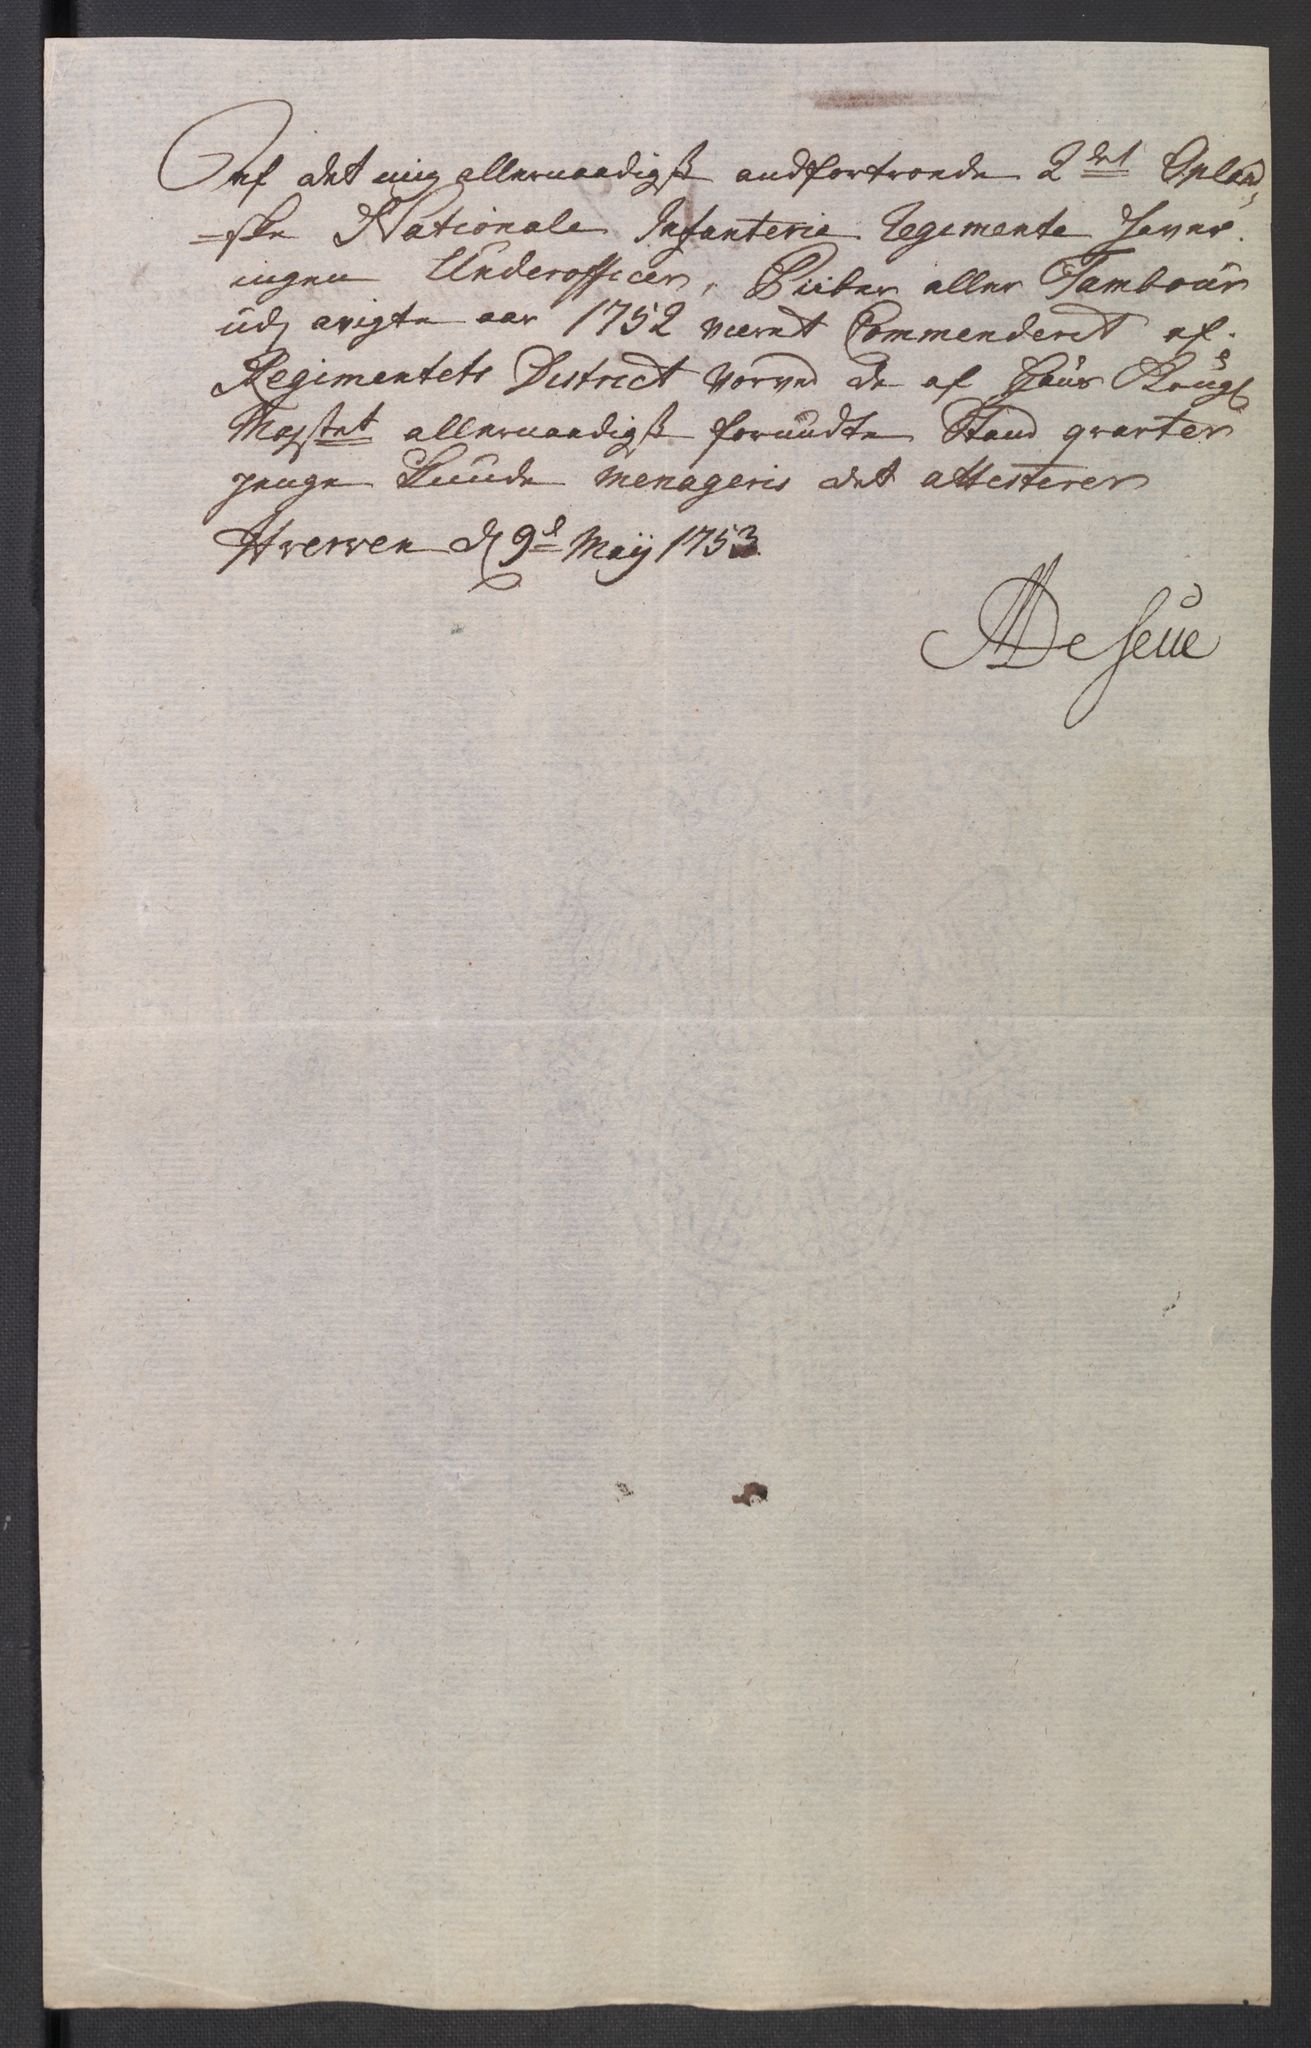 Af det mig allernaadigst andfortroede 2det Opland,
=ske Nationale Infanterie Regimente haver
ingen Underofficer, Piiber eller Tambour
udj avigte aar 1752 været Commenderet af
Regimentets District vorved de af Hans Kongl
Mayst.et allernaadigst forundte Stand qvarter
penge kunde menageris det attesterer
Hverven d 9d Maij 1753
De Seue